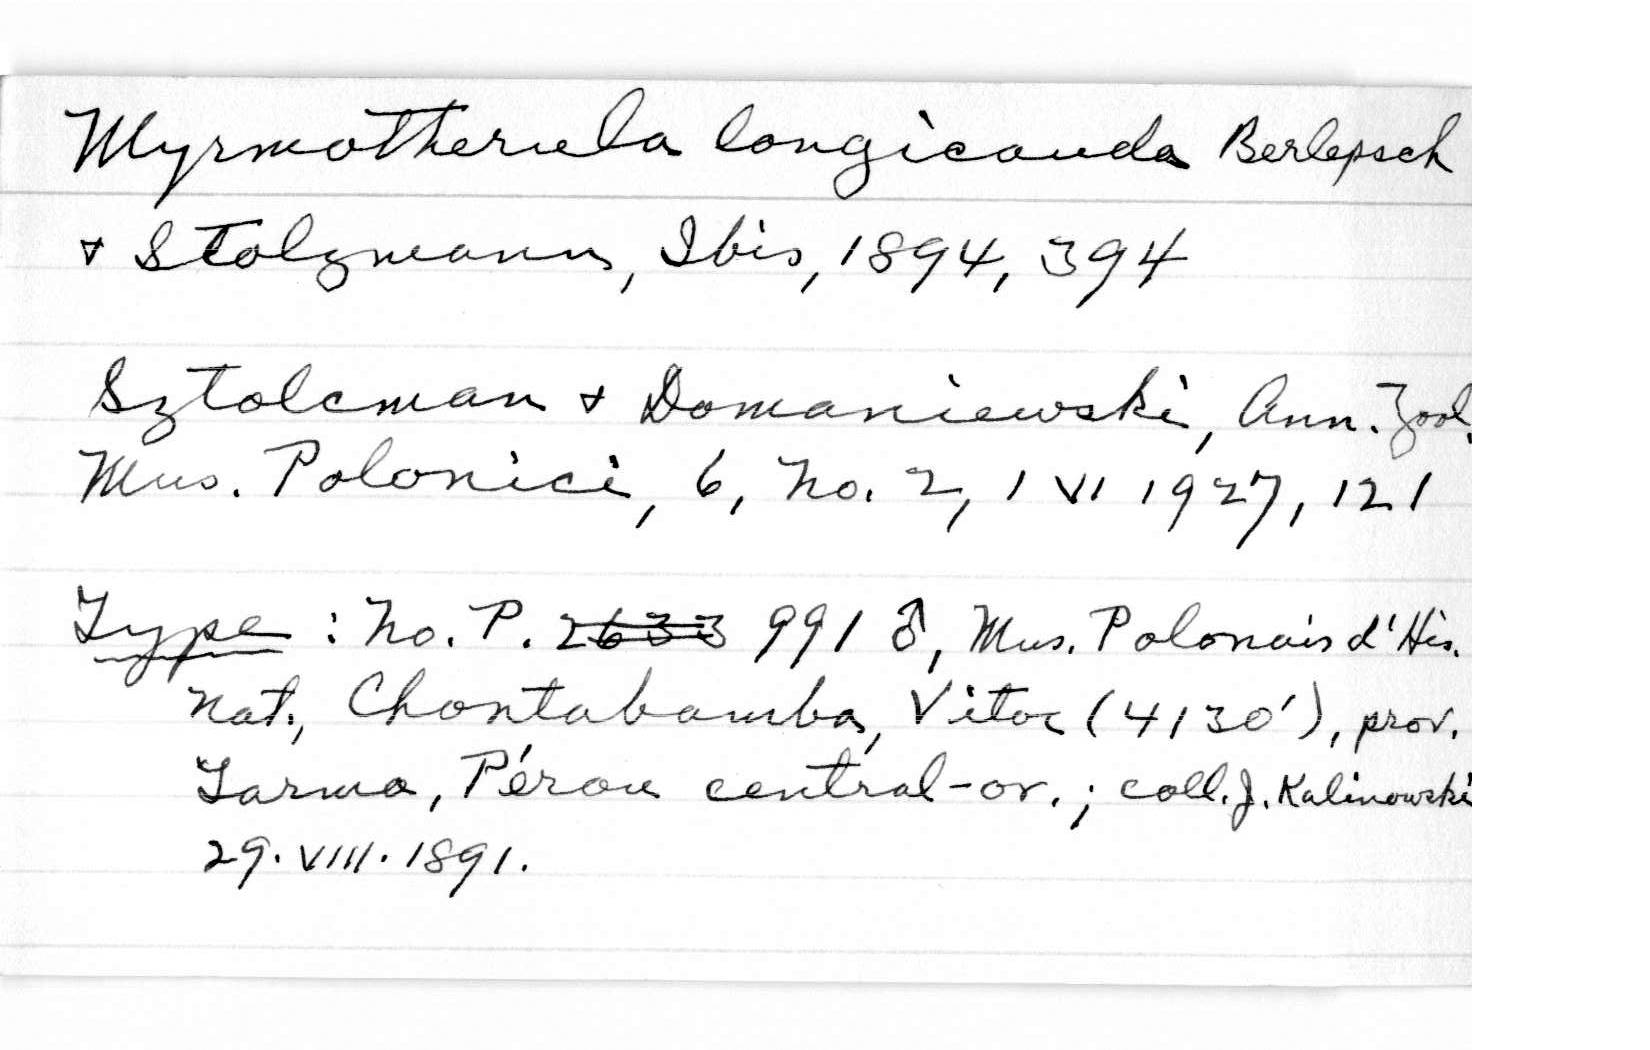 Myrmotherula longicauda Berlepsch
& Stolzmann, Ibis, 1894, 394
Sztolcman & Domaniewski, Ann. Zool.
Mus. Polonici, 6, No. 2, 1 VI 1927, 121
Type : No. P. 2633 991 ♂, Mus. Polonais d'His.
Nat., Chontabamba, Vitoc (4130'), prov.
Tarma, Pérou central-or. ; coll. J. Kalinowski
29. VIII. 1891.